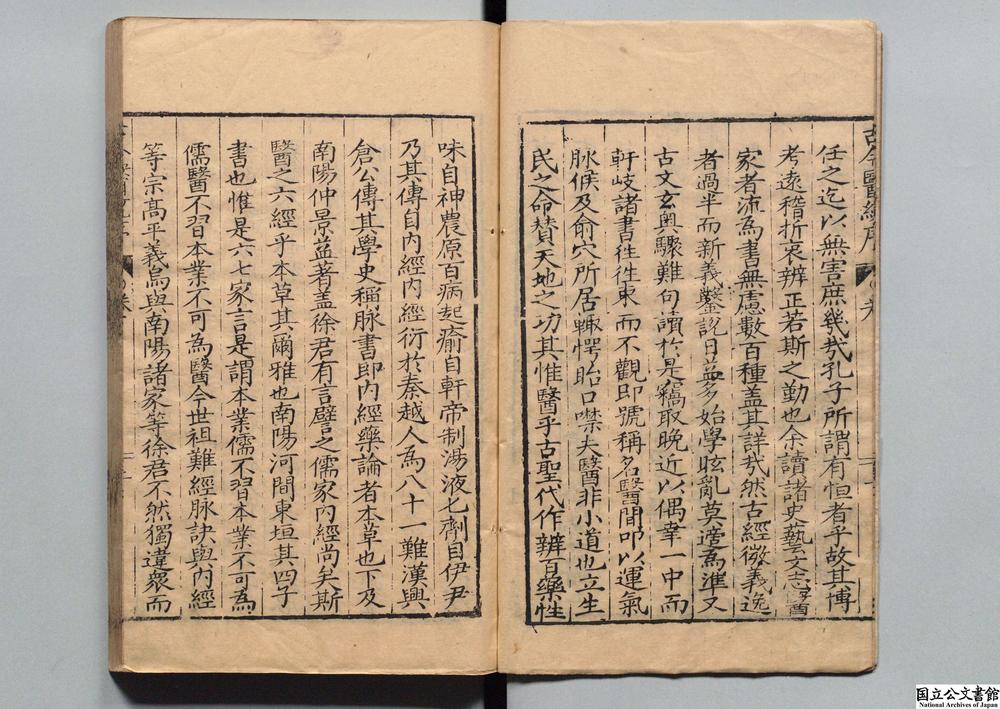 古今醫統序
任之迄以無害庶幾㢤孔子所謂有恒者乎故其博
考遠稽折衷辨正若斯之勤也余讀諸史藝文志醫
家者流為書無慮數百種盖其詳㢤然古經微義逸
者過半而新義鑿說日益多始學眩亂莫適為準又
古文玄奧驟難句讀於是竊取晚近以偶幸一中而
軒岐諸書徃徃束而不觀即號稱名醫間叩以運氣
脉候及俞穴所居輙愕眙口噤夫醫非小道也立生
民之命賛天地之功其惟醫乎古聖代作辨百藥性
味自神農原百病起瘉自軒帝制湯液七劑自伊尹
乃其傳自内經内經衍於秦越人為八十一難漢興
倉公傳其學史稱脉書即内經藥論者本草也下及
南陽仲景益著盖徐君有言譬之儒家内經尚矣斯
醫之六經乎本草其爾雅也南陽河間東垣其四子
書也惟是六七家言是謂本業儒不習本業不可為
儒醫不習本業不可為醫今世祖難經脉訣與内經
等宗髙平義烏與南陽諸家等徐君不然獨違衆而
国立公文書館
National Archives of Japan